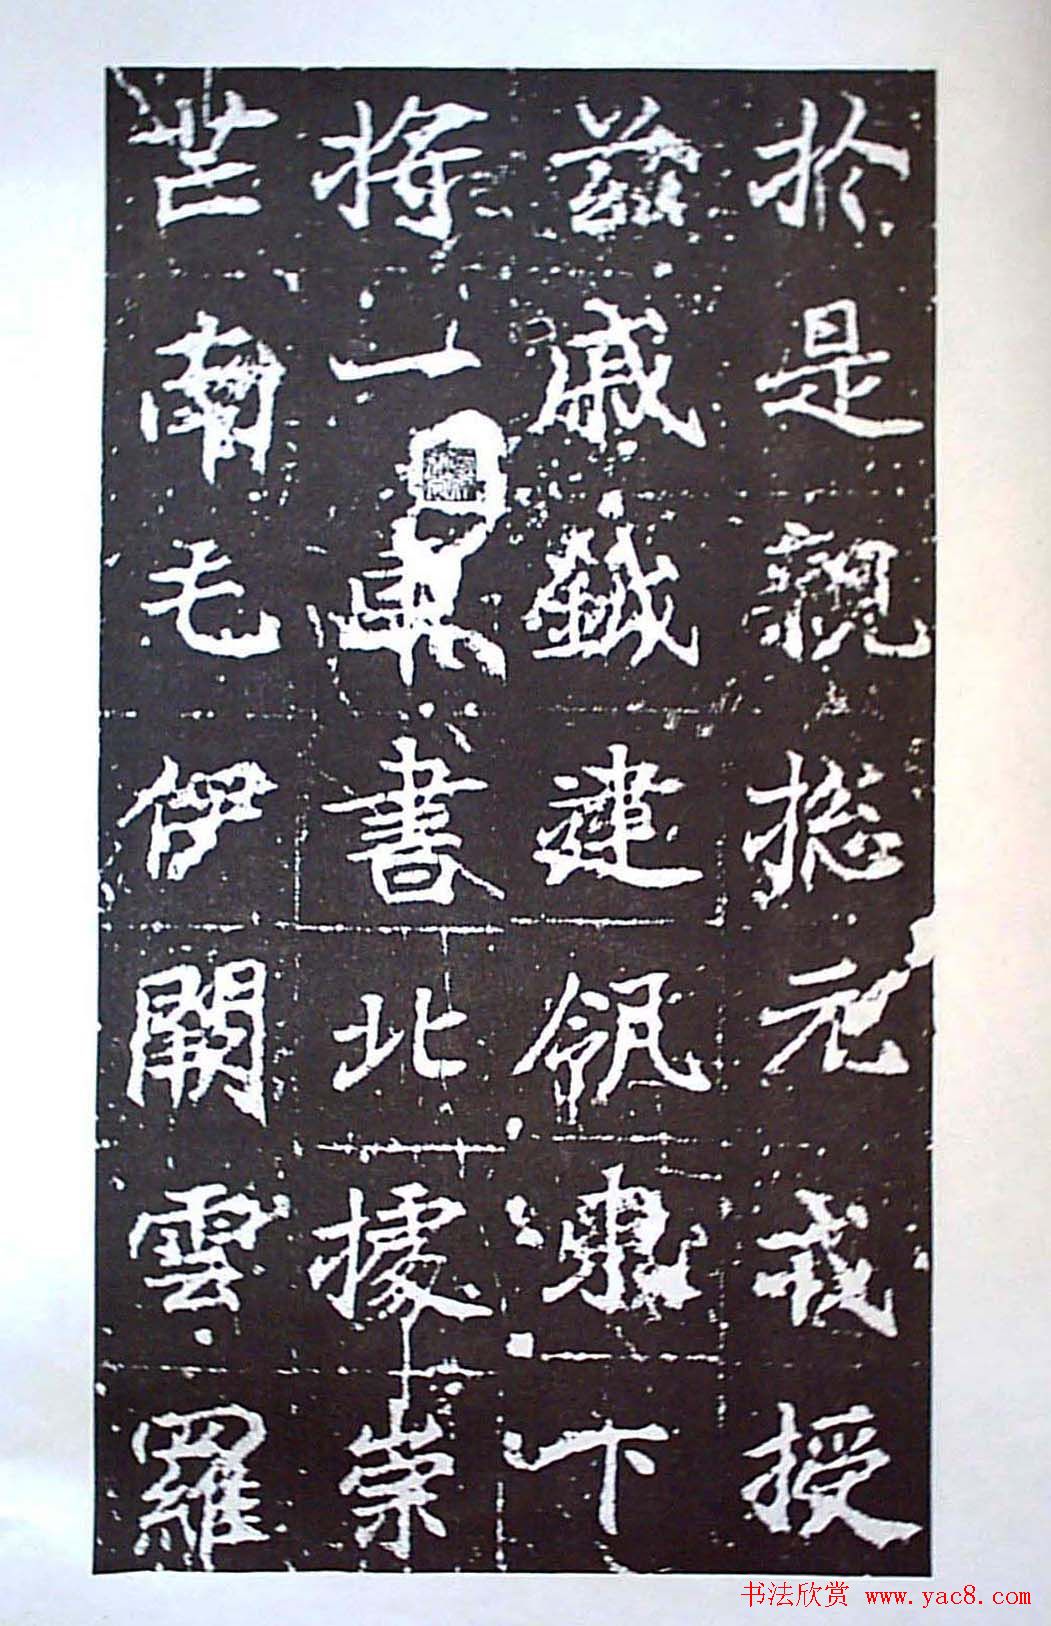 於是親揔元戎授
茲戚鉞建瓴東下
將一車書北據崇
芒南毛伊闕雲羅
书法欣赏 www.yac8.com